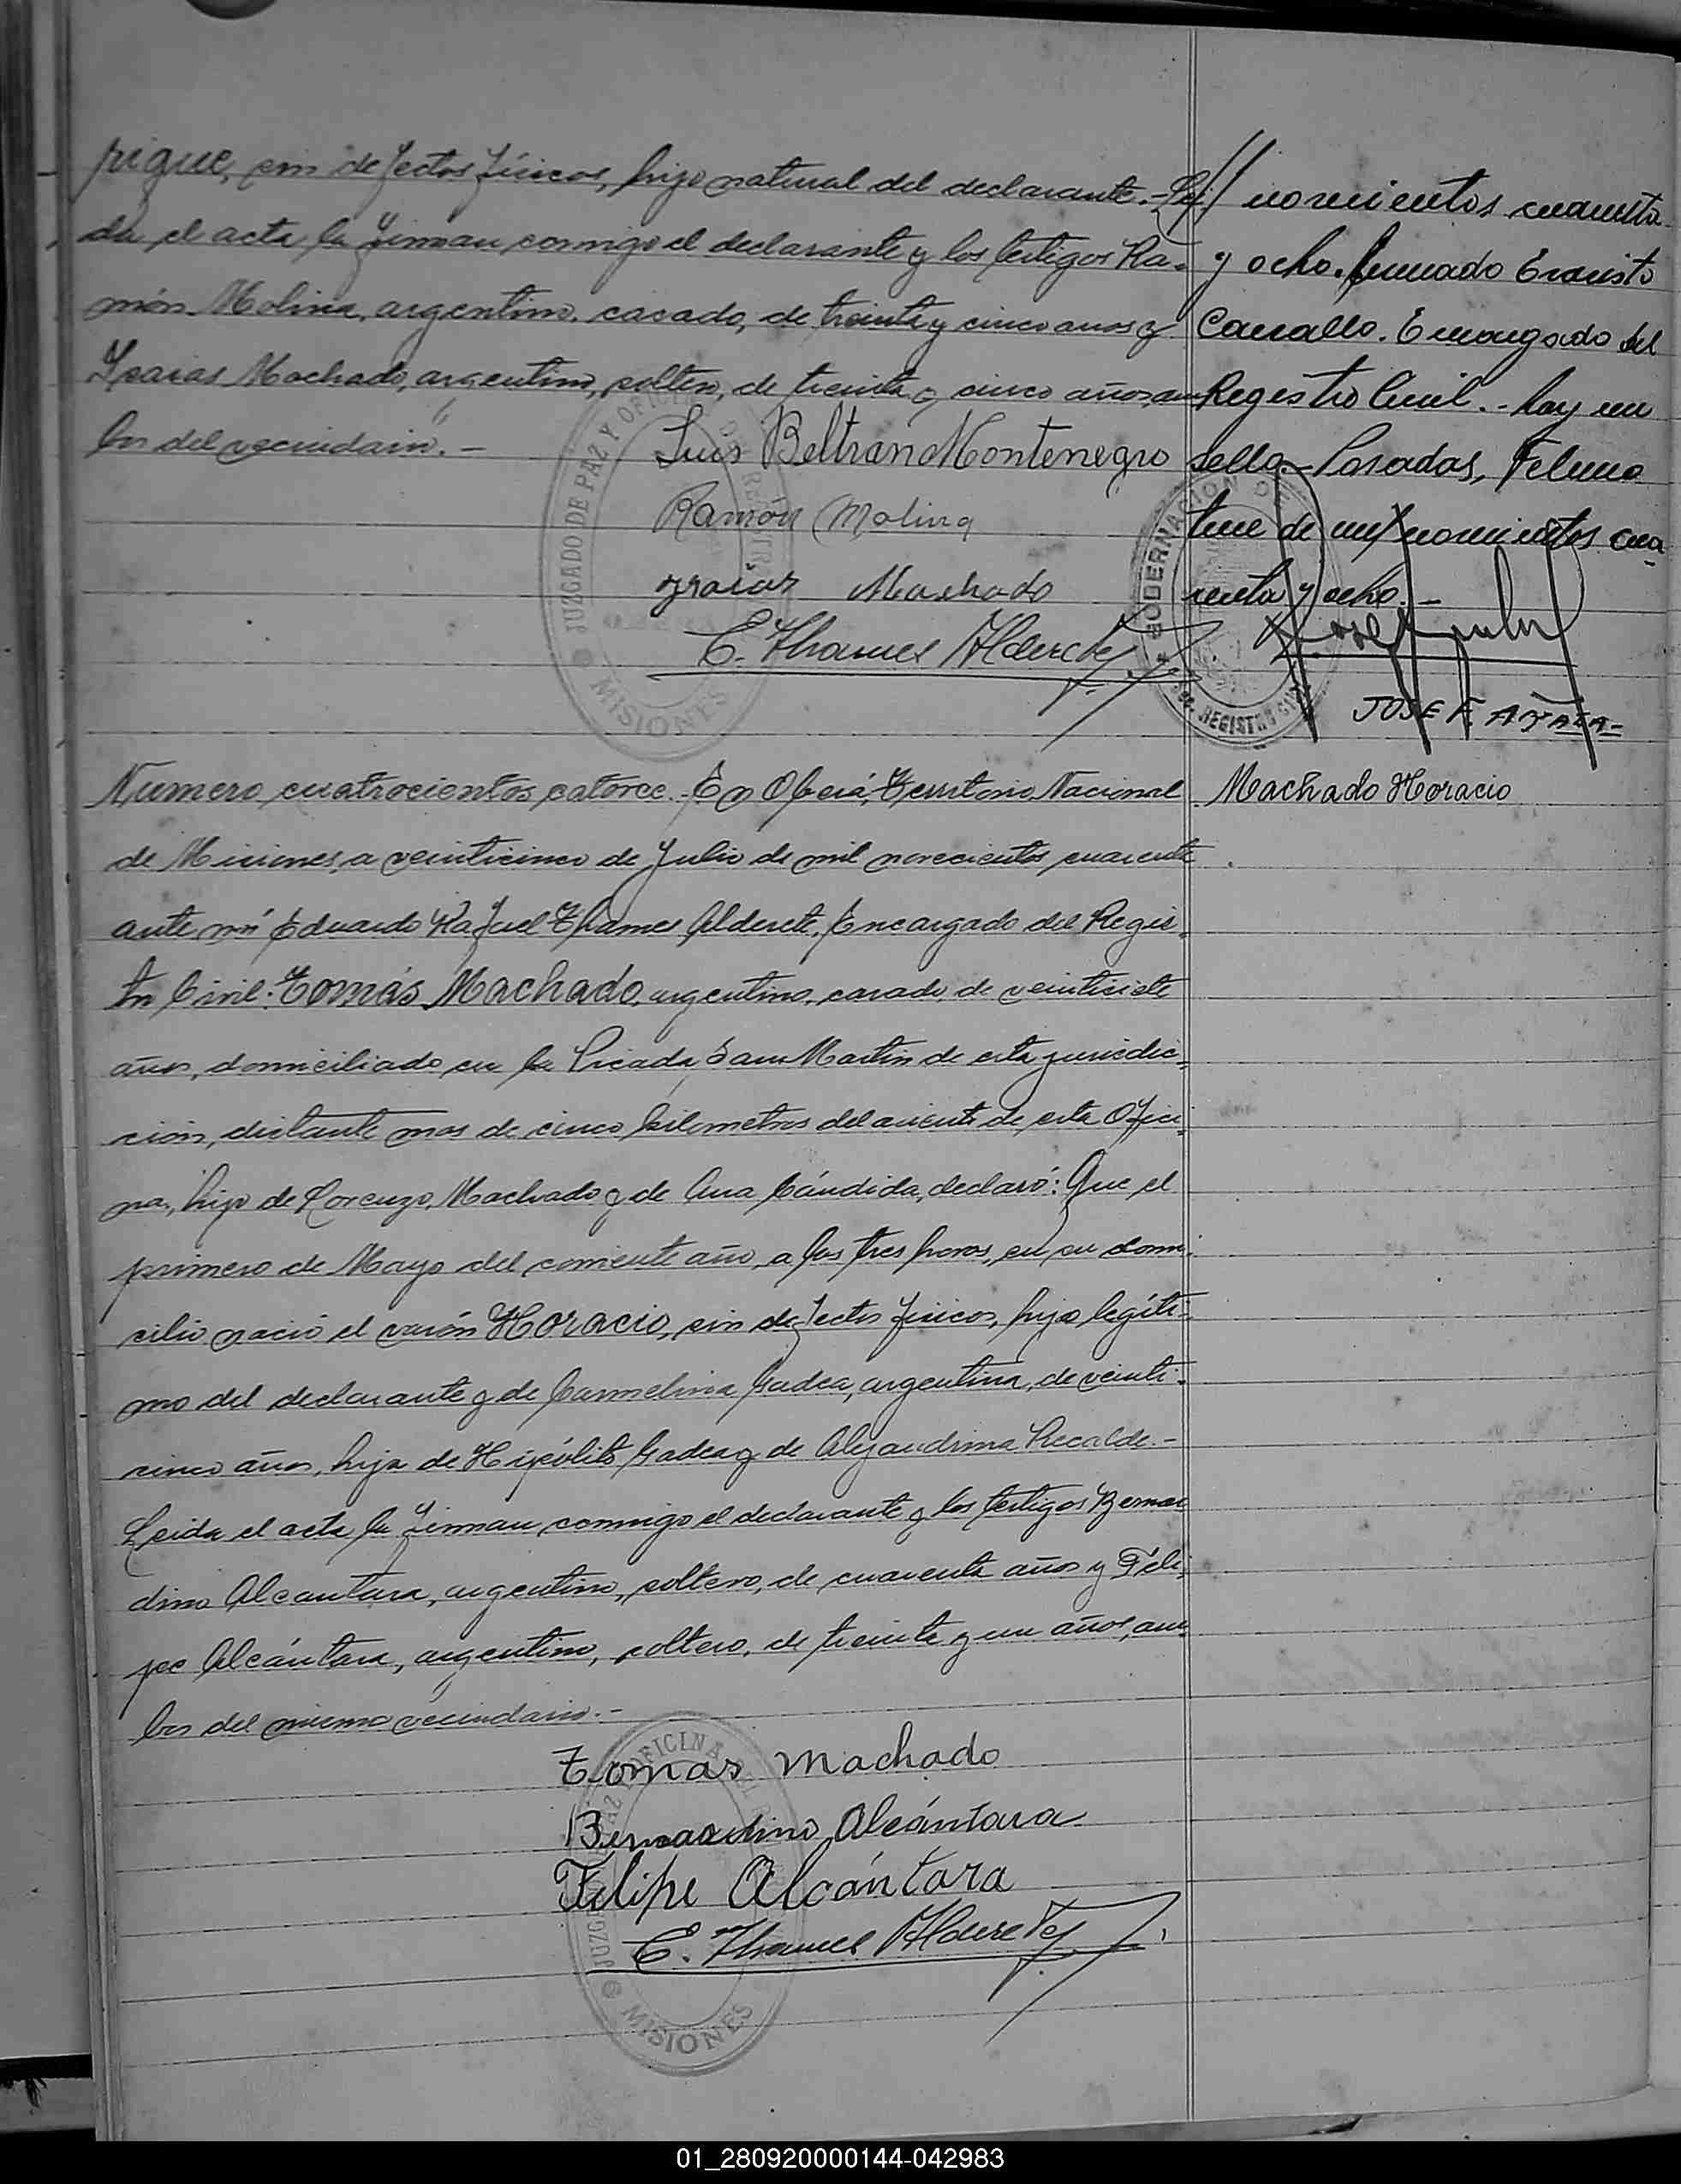 rique, sin defectos físicos, hijo natural del declarante.- Leí
da el acta la firman conmigo el declarante y los testigos Ra-
món Molina, argentino, casado, de treinta y cinco años y
Isaias Machado, argentino, soltero, de treinta y cinco años, am
bos del vecindario.-
Luis Beltran Montenegro
Ramón Molina
Isaias Machado
E. Thames Alderete
JUZGADO DE PAZ Y OFICINA DEL REGISTRO
MISIONES
// novecientos cuarenta
y ocho. firmado Evaristo
Carvallo. Encargado del
Registro Civil.- hay un
sello.- Posadas, Febrero
trece de mil novecientos cua
renta y ocho.-
GOBERNACION DE
REGISTRO CIVIL
JOSE F. AYALA-
Numero cuatrocientos catorce.- En Oberá, Territorio Nacional
de Misiones, a veinticinco de Julio de mil novecientos cuarenta
ante mí Eduardo Rafael Thames Alderete, Encargado del Regis-
tro Civil: Tomás Machado, argentino, casado, de veintisiete
años, domiciliado en la Picada San Martín de esta jurisdic-
ción, distante mas de cinco kilometros del asiento de esta Ofici-
na, hijo de Lorenzo Machado y de Ana Cándida, declaró: Que el
primero de Mayo del corriente año, a las tres horas, en su domi-
cilio nació el varón Horacio, sin defectos físicos, hijo legíti-
mo del declarante y de Carmelina Gadea, argentina, de veinti-
cinco años, hija de Hipólito Gadea y de Alejandrina Recalde.-
Leida el acta la firman conmigo el declarante y los testigos Bernar
dino Alcantara, argentino, soltero, de cuarenta años y Feli-
pe Alcántara, argentino, soltero, de treinta y un años, am-
bos del mismo vecindario.-
Tomas Machado
Bernardino Alcántara
Felipe Alcántara
E. Thames Alderete
MISIONES
Machado Horacio
01_280920000144-042983